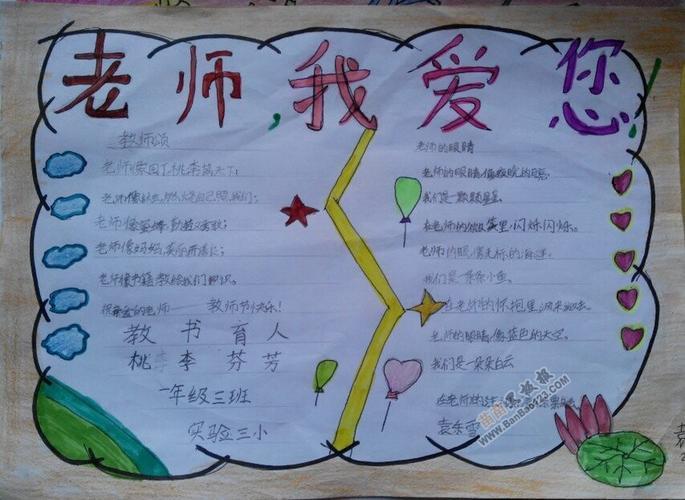 老师,我爱您
教师颂
老师像园丁,桃李满天下;
老师像蜡烛,燃烧自己照我们;
老师像蜜蜂,勤劳又勇敢;
老师像妈妈,
老师像书籍,教给我们知识。
祝亲爱的老师——教师节快乐!
教 书 育 人
桃 李 芬 芳
一年级三班
实验三小
老师的眼睛
老师的眼睛,像夜晚的
我们是一颗颗星星
在老师的 里,闪烁闪烁。
老师的眼,像无标的海洋
我们是一条条小鱼
在老师的怀抱里,游来游去。
老师的眼睛,像蓝色的天空。
我们是一朵朵白云
在老师的
袁乐雪
苗苗黑板报
www.BanBao123.com
袁